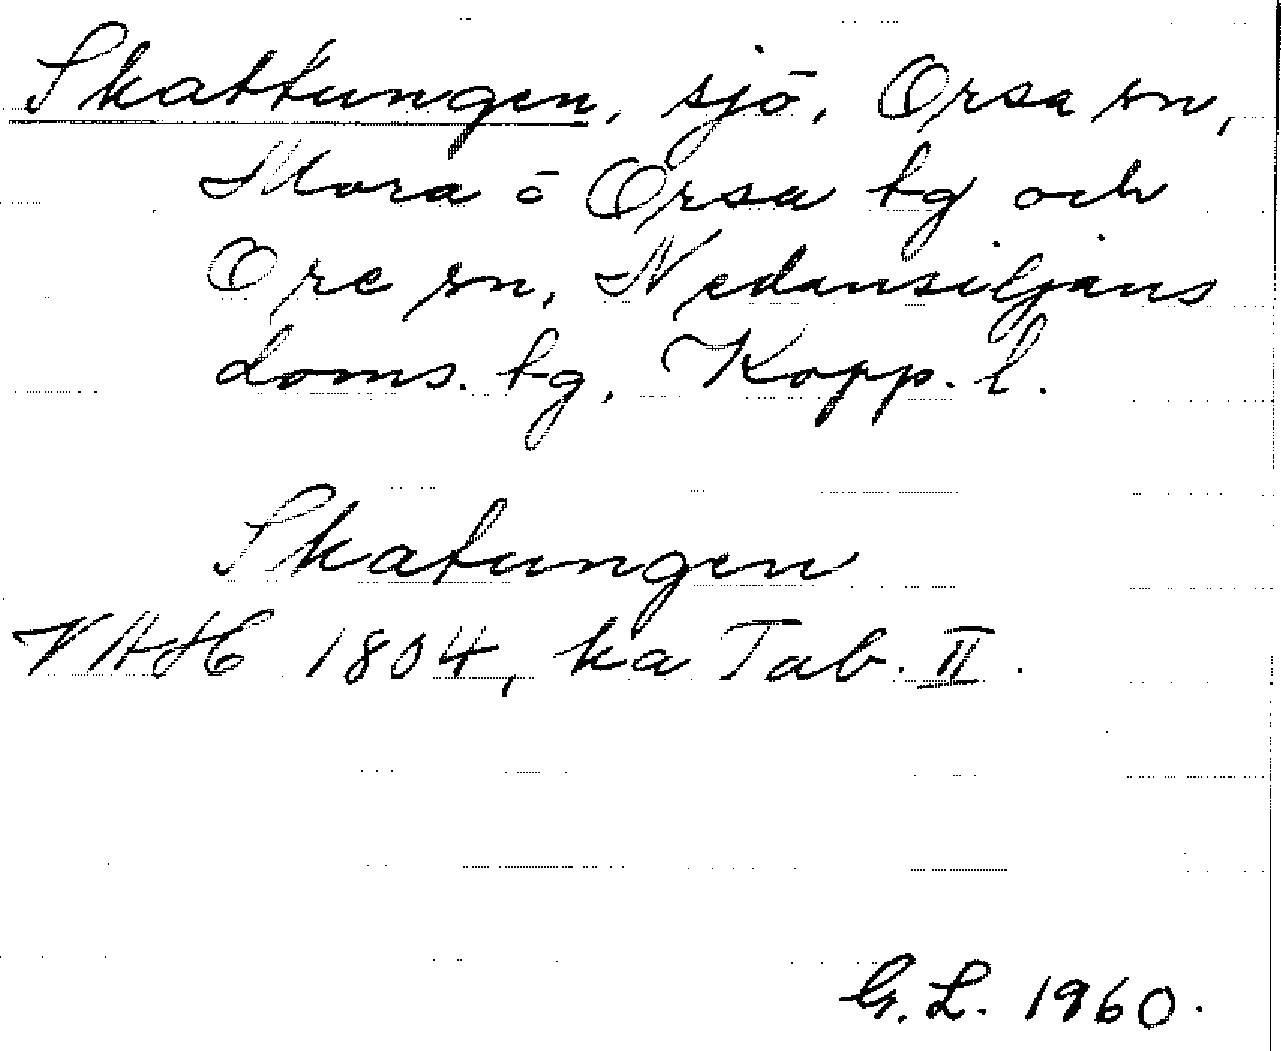 Skattungen, sjö, Orsa sn,
Mora o Orsa tg och
Ore sn, Nedansiljans
doms. tg, Kopp. l.
Skatungen
VAH 1804, ka Tab. II.
G. L. 1960.